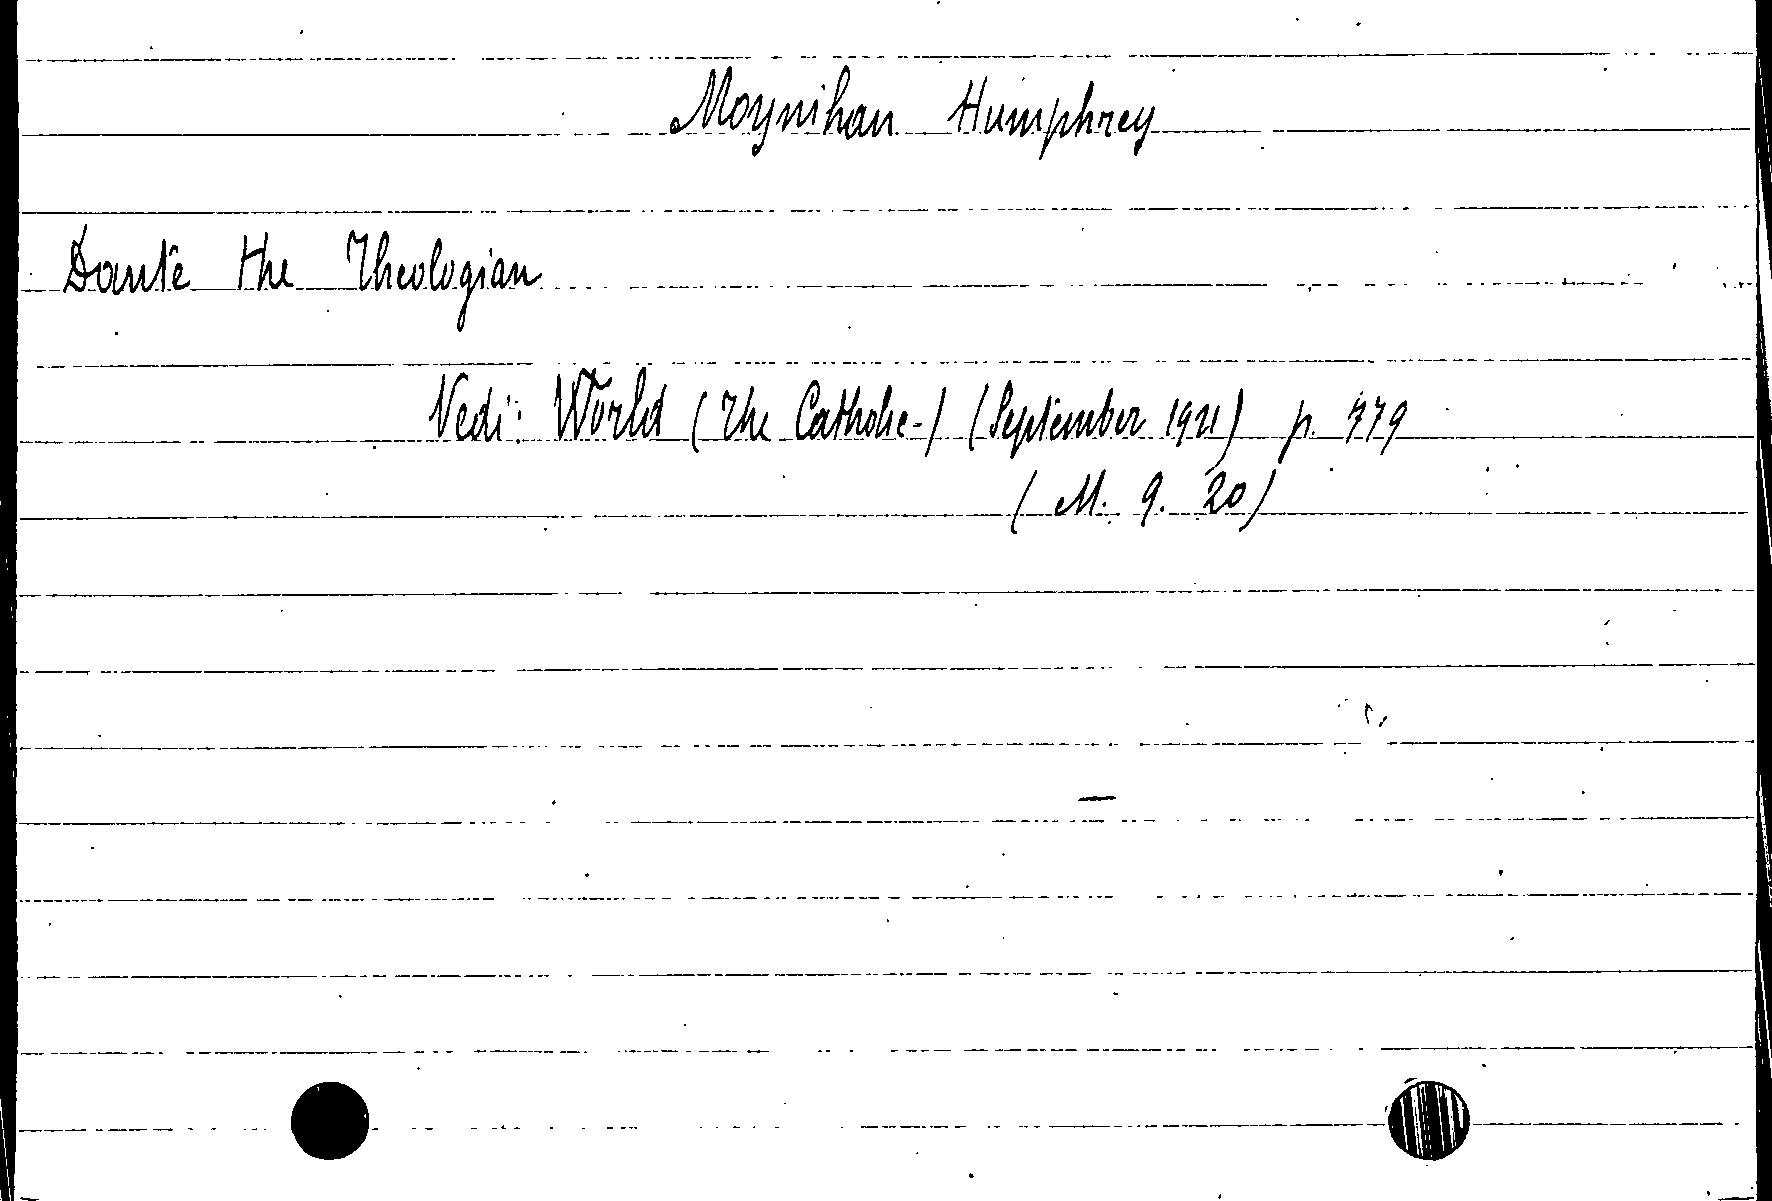 Moynihan Humphrey
Dante the Theologian
Vedi: World (The Catholic-) (September 1921) p.
(M. 9. 20)